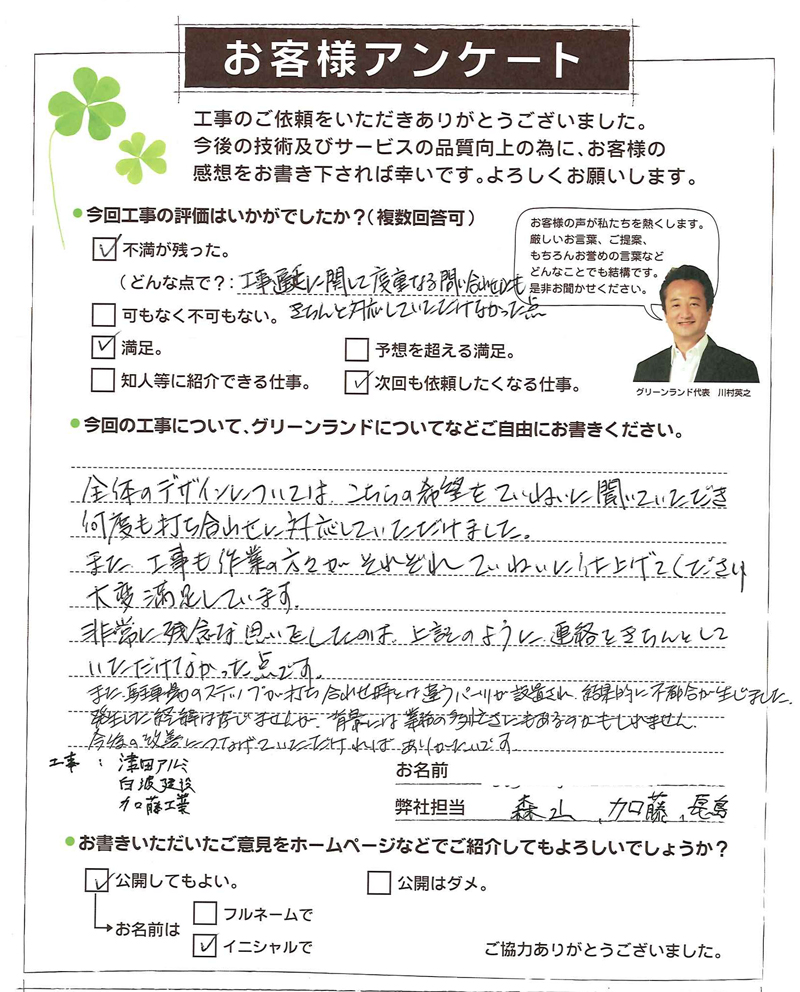 お客様アンケート
工事のご依頼をいただきありがとうございました。
今後の技術及びサービスの品質向上の為に、お客様の
感想をお書き下されば幸いです。よろしくお願いします。
今回工事の評価はいかがでしたか？（複数回答可）
お客様の声が私たちを熱くします。
厳しいお言葉、ご提案、
もちろんお誉めの言葉など
どんなことでも結構です。
是非お聞かせください。
不満が残った。
（どんな点で？：工事遅延に関して度重なる問い合わせにも
可もなく不可もない。きちんと対応していただけなかった点
満足。 予想を超える満足。
知人等に紹介できる仕事。 次回も依頼したくなる仕事。
グリーンランド代表 川村英之
今回の工事について、グリーンランドについてなどご自由にお書きください。
全体のデザインについては、こちらの希望をていねいに聞いていただき
何度も打ち合わせに対応していただけました。
また、工事も作業の方々がそれぞれていねいに仕上げてくださり
大変満足しています。
非常に残念な思いをしたのは、上記のように連絡をきちんとして
いただけなかった点です。
また、駐車場のステップが打ち合わせ時とは違うパーツが設置され、結果的に不都合が生じました。
発生した経緯は存じませんが、背景には業務の多忙さにもあるのかもしれません。
今後の改善につなげていただければ、ありがたいです。
工事： 津田アルミ
白波建設
加藤工業
お名前
弊社担当 森山、加藤、長島
お書きいただいたご意見をホームページなどでご紹介してもよろしいでしょうか？
公開してもよい。 公開はダメ。
お名前は
フルネームで
イニシャルで
ご協力ありがとうございました。